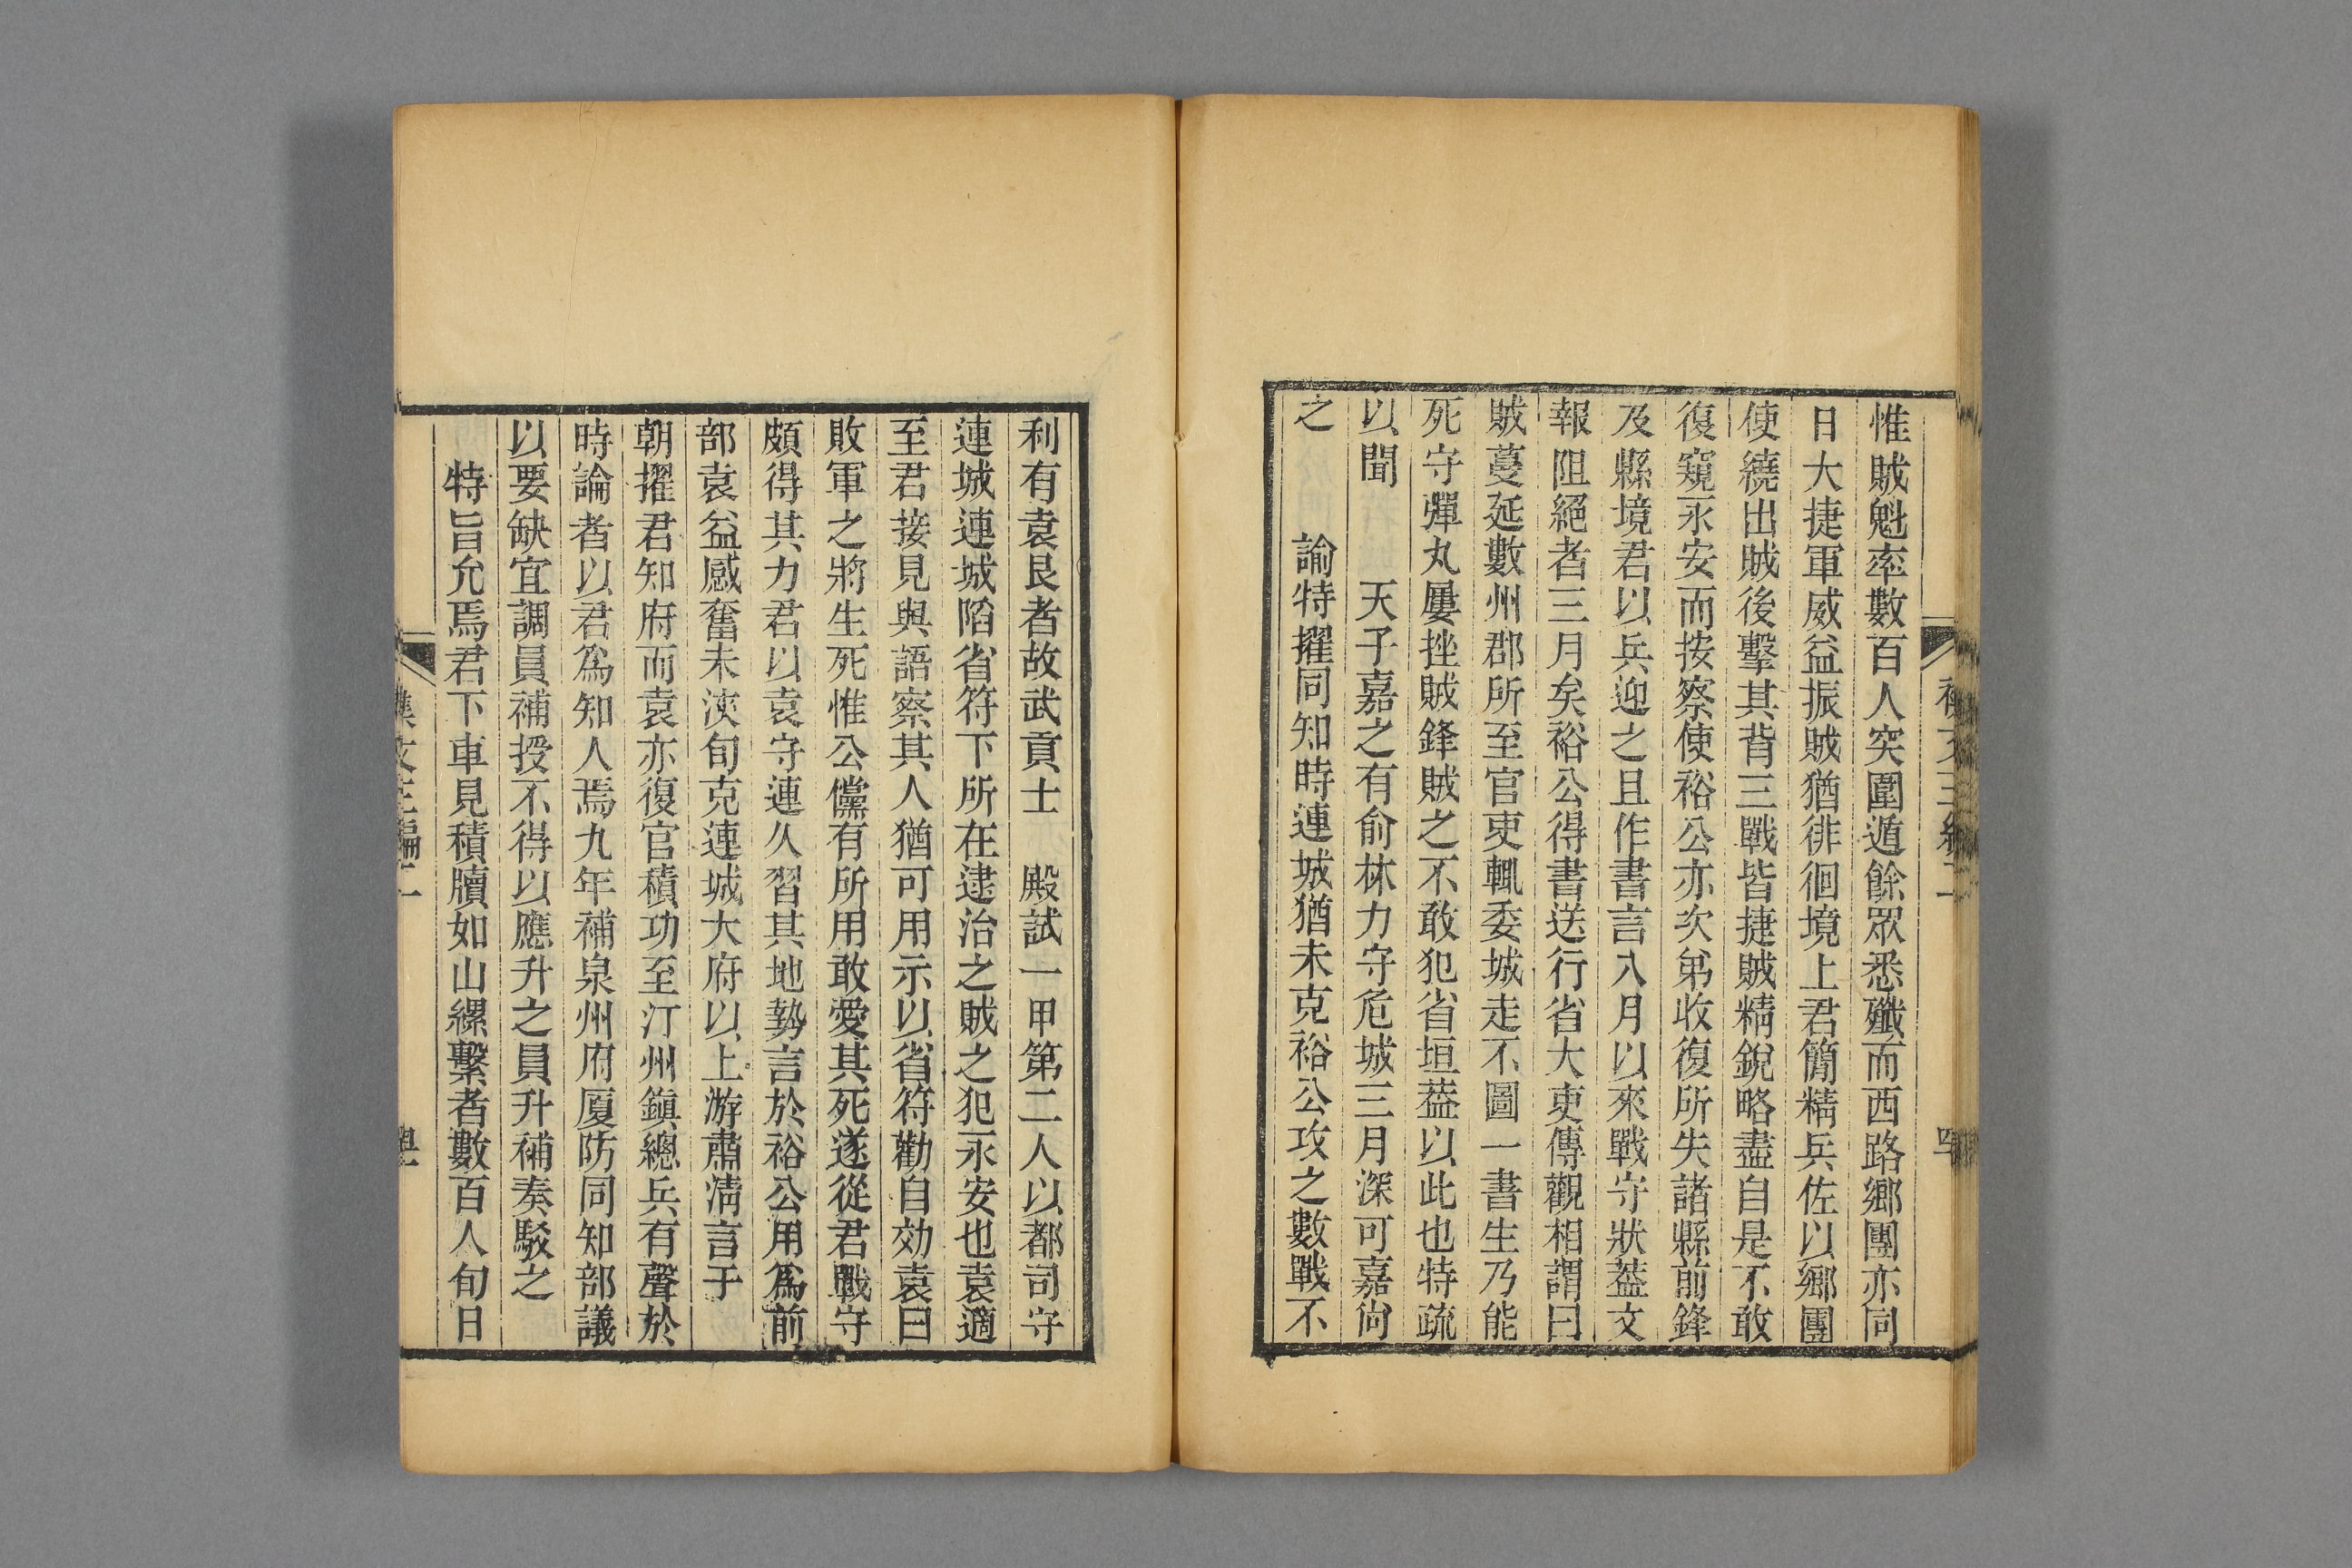 惟賊魁率數百人突圍遁餘眾悉殲而西路鄉團亦同
日大捷軍威益振賊猶徘徊境上君簡精兵佐以鄉團
使繞出賊後擊其背三戰皆捷賊精銳略盡自是不敢
復窺永安而按察使裕公亦次弟收復所失諸縣前鋒
及縣境君以兵迎之且作書言八月以來戰守狀葢文
報阻絕者三月矣裕公得書送行省大吏傳觀相謂曰
賊蔓延數州郡所至官吏輒委城走不圖一書生乃能
死守彈丸屢挫賊鋒賊之不敢犯省垣葢以此也特疏
以聞　天子嘉之有俞林力守危城三月深可嘉尙
之　諭特擢同知時連城猶未克裕公攻之數戰不
利有袁艮者故武貢士　殿試一甲第二人以都司守
連城連城陷省符下所在逮治之賊之犯永安也袁適
至君接見與語察其人猶可用示以省符勸自効袁曰
敗軍之將生死惟公儻有所用敢愛其死遂從君戰守
頗得其力君以袁守連久習其地勢言於裕公用爲前
部袁益感奮未浹旬克連城大府以上游肅淸言于
朝擢君知府而袁亦復官積功至汀州鎭總兵有聲於
時論者以君爲知人焉九年補泉州府厦防同知部議
以要缺宜調員補授不得以應升之員升補奏駁之
特旨允焉君下車見積牘如山縲繫者數百人旬日